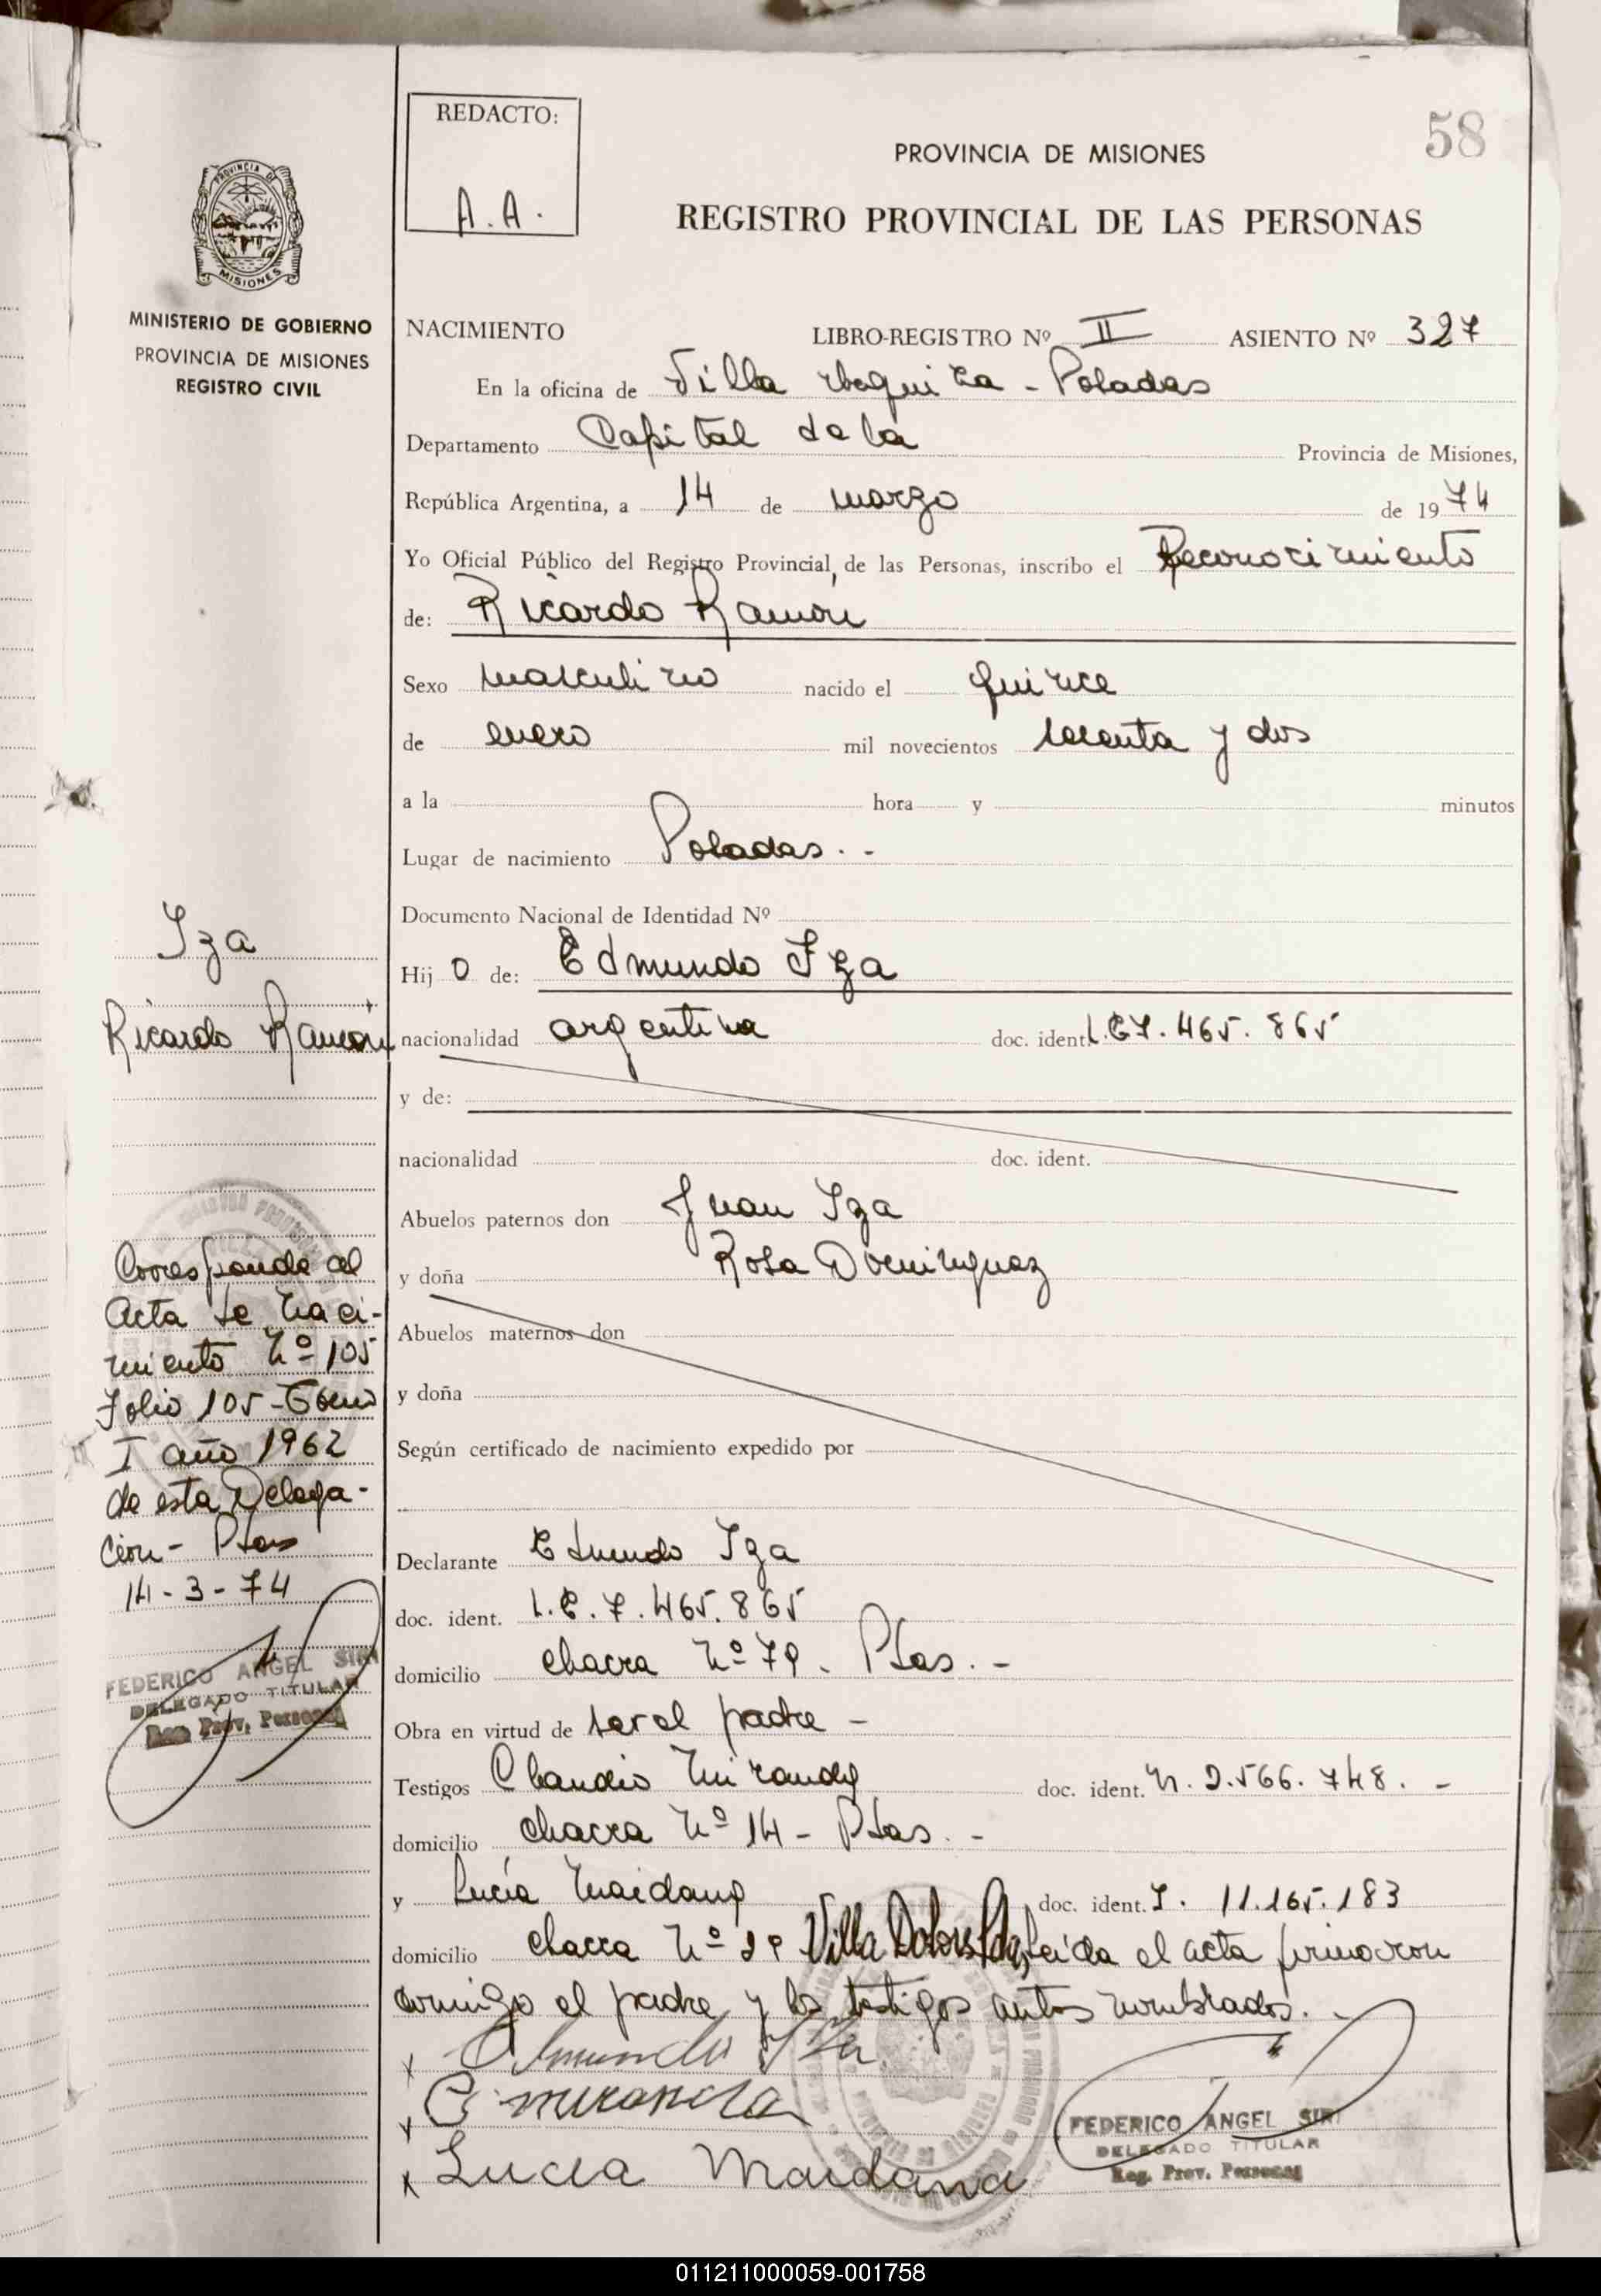 REDACTO:
A.A.
58
PROVINCIA DE MISIONES
REGISTRO PROVINCIAL DE LAS PERSONAS
PROVINCIA DE
MISIONES
MINISTERIO DE GOBIERNO
PROVINCIA DE MISIONES
REGISTRO CIVIL
NACIMIENTO LIBRO-REGISTRO Nº II ASIENTO Nº 327
En la oficina de Villa Urquiza - Posadas
Departamento Capital de la Provincia de Misiones,
República Argentina, a 14 de marzo de 1974
Yo Oficial Público del Registro Provincial de las Personas, inscribo el Reconocimiento
de: Ricardo Ramón
Sexo masculino nacido el quince
de enero mil novecientos sesenta y dos
a la hora y minutos
Lugar de nacimiento Posadas. -
Documento Nacional de Identidad Nº
Hijo de: Edmundo Iza
nacionalidad argentina doc. ident. L.E 7.465.865
y de:
nacionalidad doc. ident.
Abuelos paternos don Juan Iza
y doña Rosa Dominguez
Abuelos maternos don
y doña
Según certificado de nacimiento expedido por
Declarante Edmundo Iza
doc. ident. L.E. 7.465.865
domicilio chacra Nº 79. Pdas. -
Obra en virtud de ser el padre -
Testigos Claudio Miranda doc. ident. M. 2.566.748. -
domicilio chacra Nº 14 - Pdas. -
y Lucía Maidana doc. ident. I. 11.165.183
domicilio chacra Nº Villa Dolores Pdas, leída el acta firmaron
conmigo el padre y los testigos antes nombrados. -
x Edmundo Iza
x C. miranda
x Lucia Maidana
FEDERICO ANGEL SIRI
DELEGADO TITULAR
Reg. Prov. Personas
Iza
Ricardo Ramón
Corresponde al
Acta de naci-
miento Nº 105
Folio 105 - Tomo
I año 1962
de esta Delega-
ción - Pdas
14-3-74
FEDERICO ANGEL SIRI
DELEGADO TITULAR
Reg. Prov. Personas
011211000059-001758